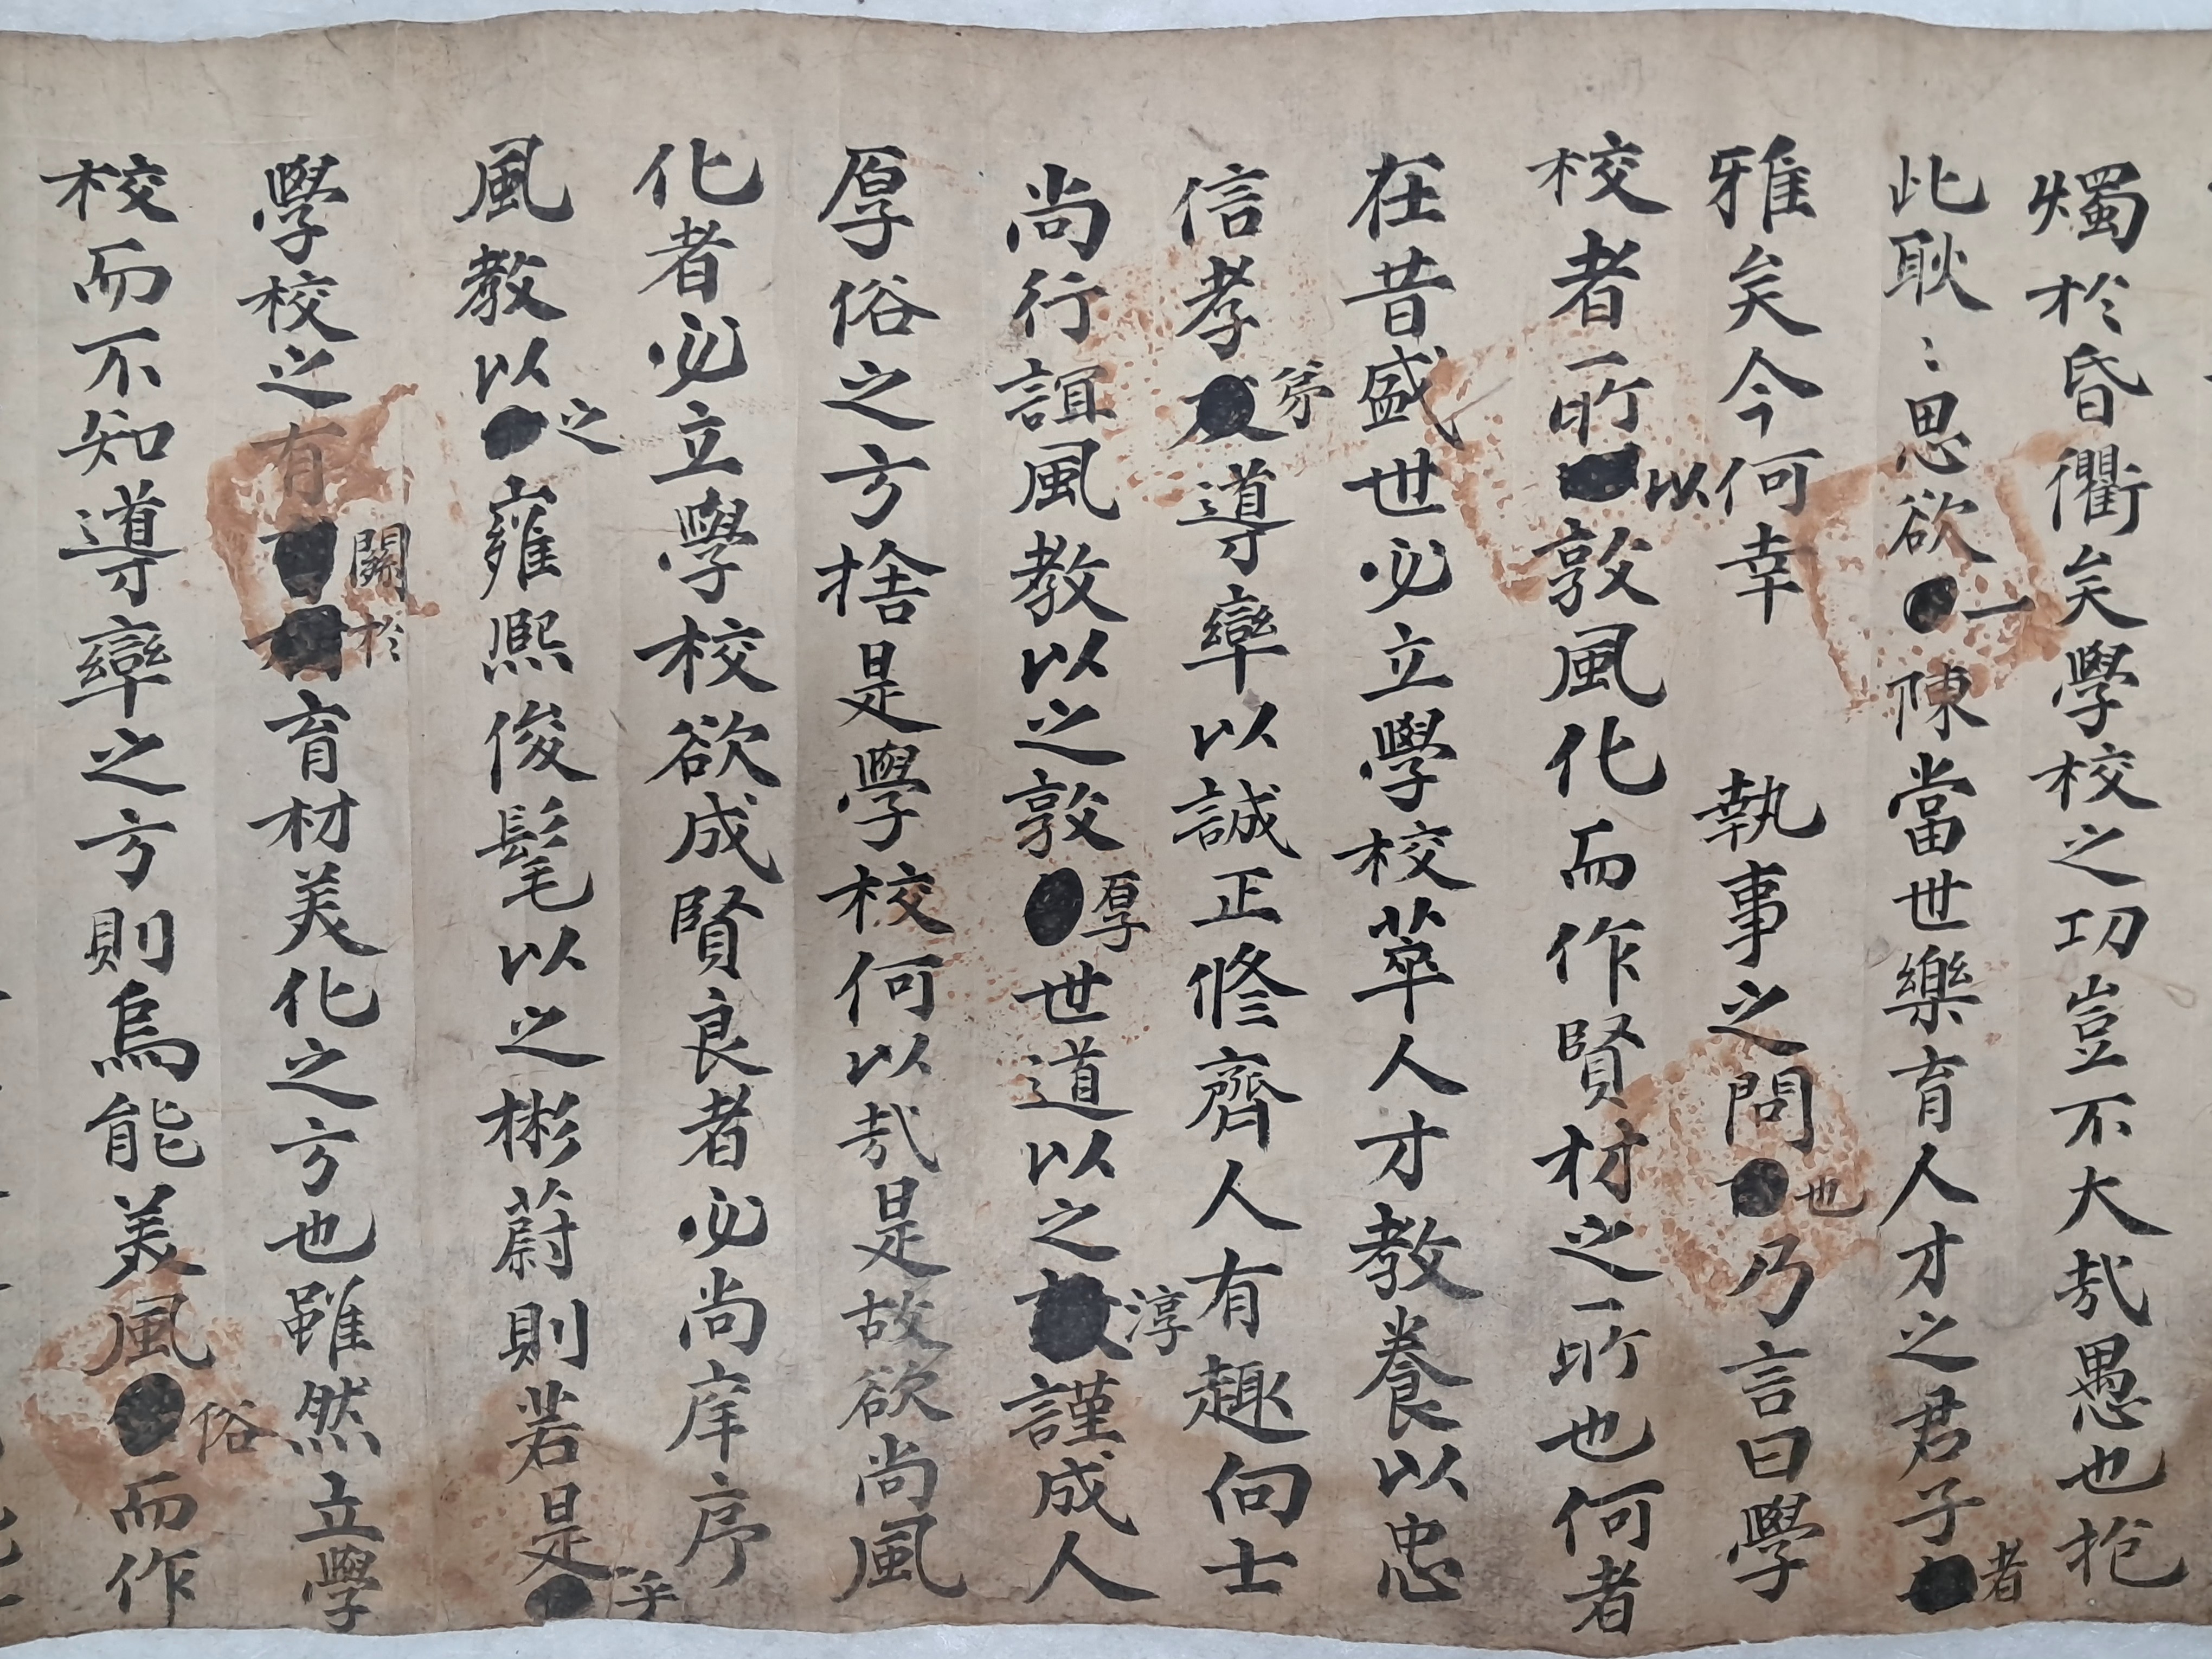 燭於昏衢矣學校之功豈不大哉愚也抱
此耿〻思欲一陳當世樂育人才之君子者
雅矣今何幸 執事之問也乃言曰學
校者所以敦風化而作賢材之所也何者
在昔盛世必立學校萃人才教養以忠
信孝弟導率以誠正修齊人有趣向士
尚行誼風教以之敦厚世道以之淳謹成人
厚俗之方捨是學校何以哉是故欲尚風
化者必立學校欲成賢良者必尚庠序
風教以之雍熙俊髦以之彬蔚則若是乎
學校之有關於育材美化之方也雖然立學
校而不知導率之方則烏能美風俗而作